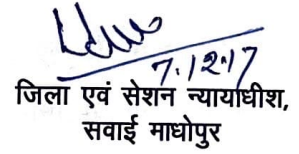 7.12.17
जिला एवं सेशन न्यायाधीश,
सवाई माधोपुर